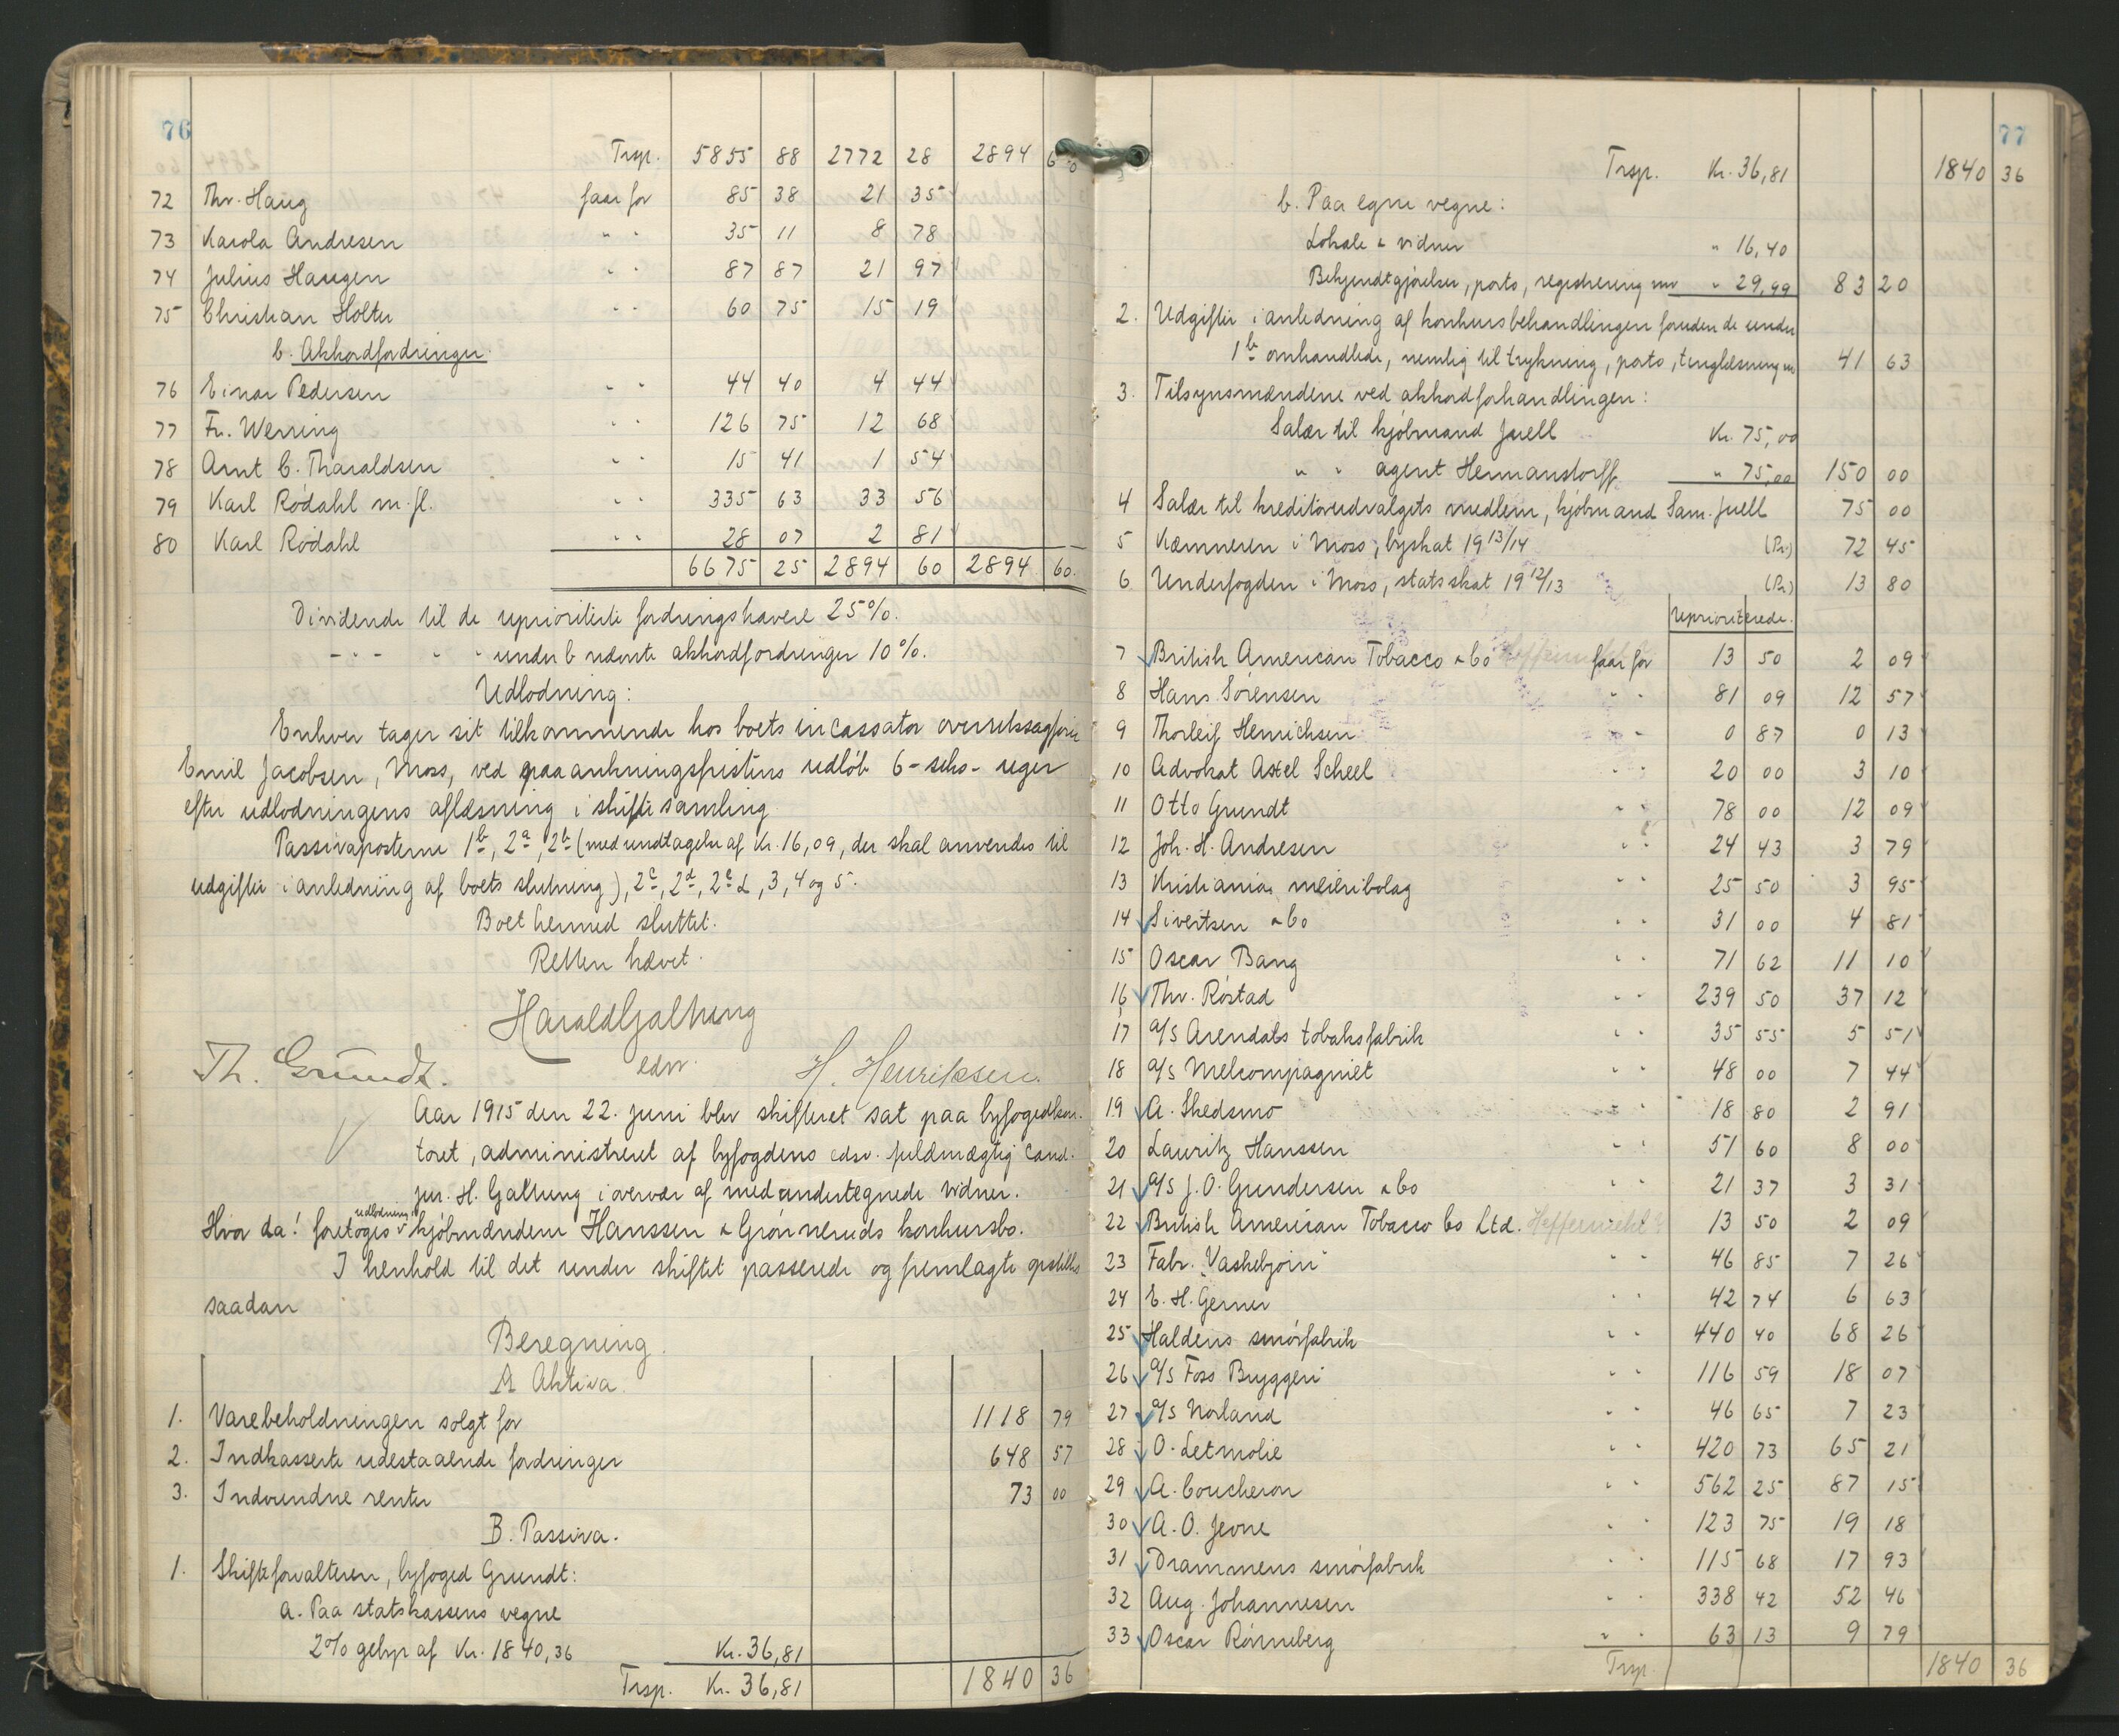 76
Trsp. 5855 88 2772 28 2894 60
72 Thv. Haug faar for 85 38 21 35
73 Karola Andresen " " 35 11 8 78
74 Julius Haugen " " 87 87 21 97
75 Christian Holter " " 60 75 15 19
b. Akkordfordringer.
76 Einar Pedersen " " 44 40 4 44
77 Fr. Werring " " 126 75 12 68
78 Arnt C. Tharaldsen " " 15 41 1 54
79 Karl Rødahl m. fl. " " 335 63 33 56
80 Karl Rødahl " " 28 07 2 81
6675 25 2894 60 2894 60.
Dividende til de uprioriterte fordringshavere 25%.
- - - " " " under b nævnte akkordfordringer 10%.
Udlodning:
Enhver tager sit tilkommende hos boets incassator overretssagfører
Emil Jacobsen, Moss, ved paaankningsfristens udløb 6-seks- uger
efter udlodningens aflæsning i skiftesamling.
Passivaposterne 1b, 2a, 2b (med undtagelse af Kr. 16,09, der skal anvendes til
udgifter i anledning af boets slutning), 2c, 2d, 2e L, 3, 4 og 5.
Boet hermed sluttet.
Retten hævet.
Harald Galtung
edsv.
Th. Grundt. H. Henriksen.
Aar 1915 den 22. juni blev skifteret sat paa byfogedkon-
toret, administreret af byfogdens edsv. fuldmægtig cand.
jur. H. Galtung i overvær af medundertegnede vidner.
Hvor da! foretoges udlodning i kjøbmændene Hanssen & Grønneruds konkursbo.
I henhold til det under skiftet passerede og fremlagte opstilles
saadan
Beregning.
A Aktiva.
1. Varebeholdningen solgt for 1118 79
2. Indkasserte udestaaende fordringer 648 57
3. Indvundne renter 73 00
B. Passiva.
1. Skifteforvalteren, byfoged Grundt:
a. Paa statskassens vegne
2% gebyr af Kr. 1840,36 Kr. 36,81
Trsp. Kr. 36,81 1840 36
77
Trsp. Kr. 36,81 1840 36
b. Paa egne vegne:
Lokale & vidner " 16,40
Bekjendtgjørelser, porto, registrering mv " 29,99 83 20
2. Udgifter i anledning af konkursbehandlingen foruden de under
1b omhandlede, nemlig til trykning, porto, tinglæsning mv 41 63
3. Tilsynsmændene ved akkordforhandlingen:
Salær til kjøbmand Juell Kr. 75,00
" " agent Hermanstorff " 75,00 150 00
4 Salær til kreditorudvalgets medlem, kjøbmand Sam. Juell 75 00
5 Kæmneren i Moss, byskat 1913/14 (Pr.) 72 45
6 Underfogden i Moss, statsskat 1912/13 (Pr.) 13 80
Upriorterede.
7 British American Tobacco & Co faar for 13 50 2 09
8 Hans Sørensen " " 81 09 12 57
9 Thorleif Henrichsen " " 0 87 0 13
10 Advokat Axel Scheel " " 20 00 3 10
11 Otto Grundt " " 78 00 12 09
12 Joh. H. Andresen " " 24 43 3 79
13 Kristiania meieribolag " " 25 50 3 95
14 Sivertsen & Co " " 31 00 4 81
15 Oscar Bang " " 71 62 11 10
16 Thv. Røstad " " 239 50 37 12
17 A/S Arendals tobaksfabrik " " 35 55 5 51
18 A/S Melcompagniet " " 48 00 7 44
19 A. Skedsmo " " 18 80 2 91
20 Lauritz Hanssen " " 51 60 8 00
21 A/S J. O. Gundersen & Co " " 21 37 3 31
22 British American Tobacco Co Ltd. 13 50 2 09
23 Fabr. "Vaskebjørn" " " 46 85 7 26
24 E. H. Gerner " " 42 74 6 63
25 Haldens smørfabrik " " 440 40 68 26
26 A/S Foss Bryggeri " " 116 59 18 07
27 A/S Norland " " 46 65 7 23
28 O. Letmolie " " 420 73 65 21
29 A. Coucheron " " 562 25 87 15
30 A. O. Jevne " " 123 75 19 18
31 Drammens smørfabrik " " 115 68 17 93
32 Aug. Johannesen " " 338 42 52 46
33 Oscar Rønneberg " " 63 13 9 79
Trsp. 1840 36